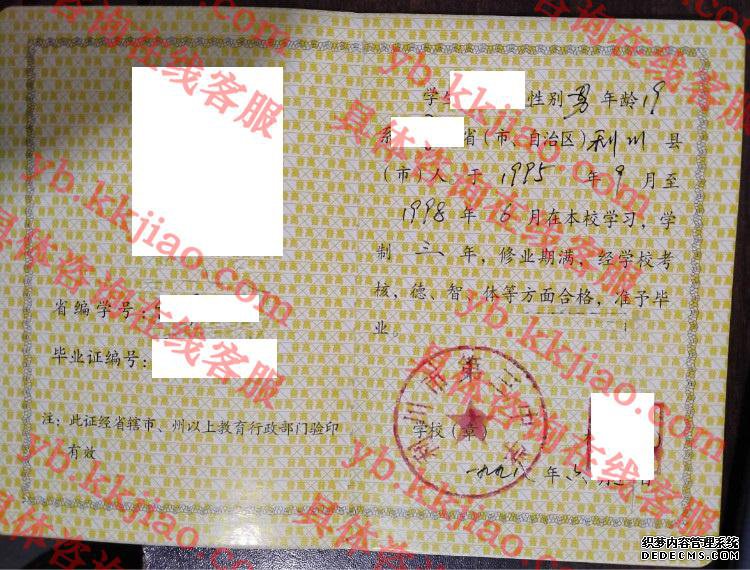 学 性别 男 年龄 19
系 省(市、自治区)利川 县
(市)人 于 1995 年 9 月至
1998 年 6 月在本校学习,学
制 三 年,修业期满,经学校考
核,德、智、体等方面合格,准予毕
业。
省编学号:
毕业证编号:
注:此证经省辖市、州以上教育行政部门验印
有效
学校(章)
利川市第三中学
一九九八 年 六 月 日
yb.kkjiao.com
具体咨询在线客服
yb.kkjiao.com
具体咨询在线客服
yb.kkjiao.com
具体咨询在线客服
yb.kkjiao.com
具体咨询在线客服
织梦内容管理系统
DEDECMS.COM